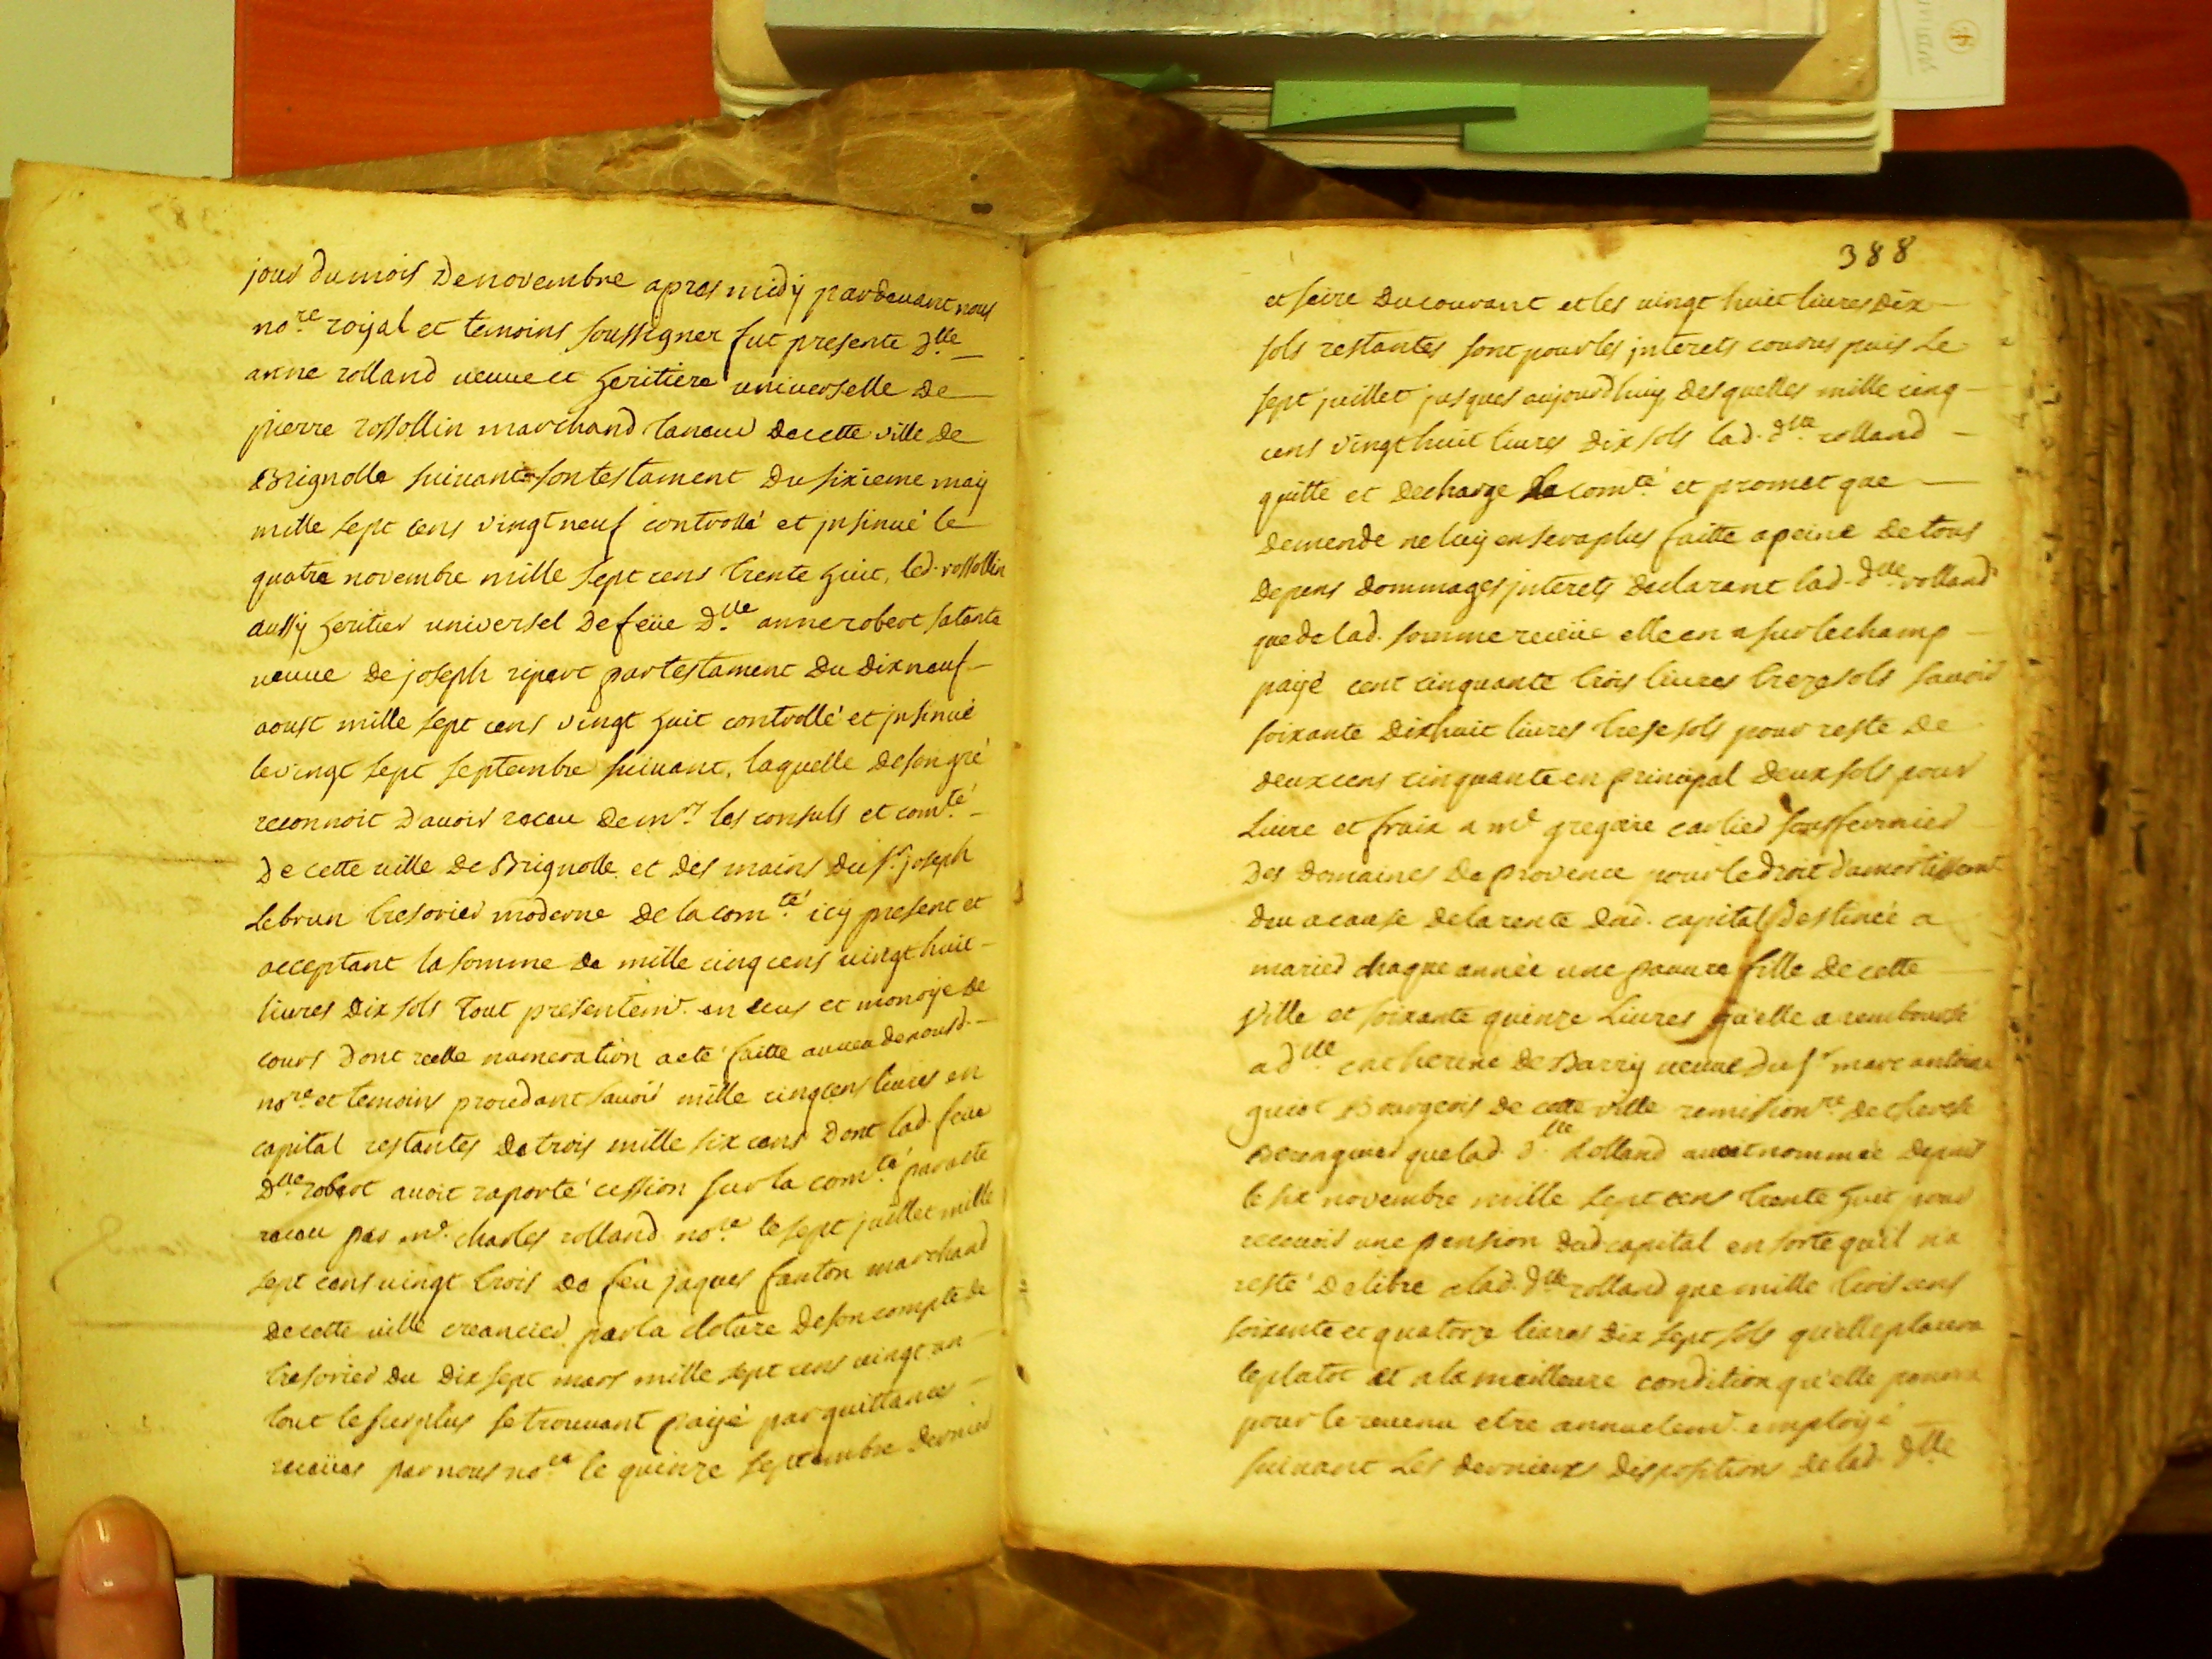 jour du mois de novembre apres midy pardevant nous
no.re royal et temoins soussigner fut presente d.lle
anne rolland veuve et heritiere universelle de
pierre rossollin marchand taneur de cette ville de
Brignolle suivant son testament du sixieme may
mille sept cens vingt neuf controllé et insinué le
quatre novembre mille sept cens trente huit, led. rossollin
aussy heritier universel de feüe D.lle anne robert sa tante
veuve de joseph ripert par testament du dix neuf
aoust mille sept cens vingt huit controllé et insinué
le vingt sept septembre suivant, laquelle de son gré
reconnoit d'avoir receu de m.rs les consuls et com.té
De cette ville de Brignolle et des mains du s.r joseph
Lebrun tresorier moderne de la com.té icy present et
acceptant la somme de mille cinq cens vingt huit
livres dix sols tout presentem.t en ecus et monoye de
cours dont reelle numeration a eté faitte au veu de nousd.
no.re et temoins procedant savoir mille cinq cens livres en
capital restantes de trois mille six cens dont lad. feue
D.lle robert avoit raporté cession sur la com.té par acte
receu par m.e charles rolland no.re le sept juillet mille
sept cens vingt trois de feu jaques fanton marchand
de cette ville creancier par la cloture de son compte de
tresorier du dix sept mars mille sept cens vingt un
tout le surplus se trouvant payé par quittances
receües par nous no.re le quinze septembre dernier
388
et seize du courant et les vingt huit livres dix
sols restantes sont pour les interets courus puis le
sept juillet jusques aujourdhuy, desquelles mille cinq
cens vingt huit livres dix sols lad. d.lle rolland
quitte et decharge la com.té et promet que
demende ne luy en sera plus faitte a peine de tous
depens dommages interets declarant lad. d.lle rolland
que de lad. somme receüe elle en a sur le champ
payé cent cinquante trois livres treze sols savoir
soixante dix huit livres trese sols pour reste de
deux cens cinquante en principal deux sols pour
Livre et fraix a m.e gregoire carlier sousfermier
des domaines de provence pour le droit d'amortissem.t
deu a cause de la rente dud. capital destinée a
marier chaque année une pauvre fille de cette
ville et soixante quinze Livres qu'elle a remboursé
a d.lle catherine de Barry veuve du s.r marc antoine
guiot Bourgeois de cette ville remision.re de therese
Berenguier que lad. d.lle Rolland avoit nommée depuis
le six novembre mille sept cens trente huit pour
recevoir une pension dud capital en sorte qu'il n'a
resté de libre a lad. d.lle rolland que mille trois cens
soixente et quatorze livres dix sept sols qu'elle placera
le plutot et a la meilleure condition qu'elle pourra
pour le revenu etre annuelem.t employé
suivant Les dernieres dispositions de lad. d.lle